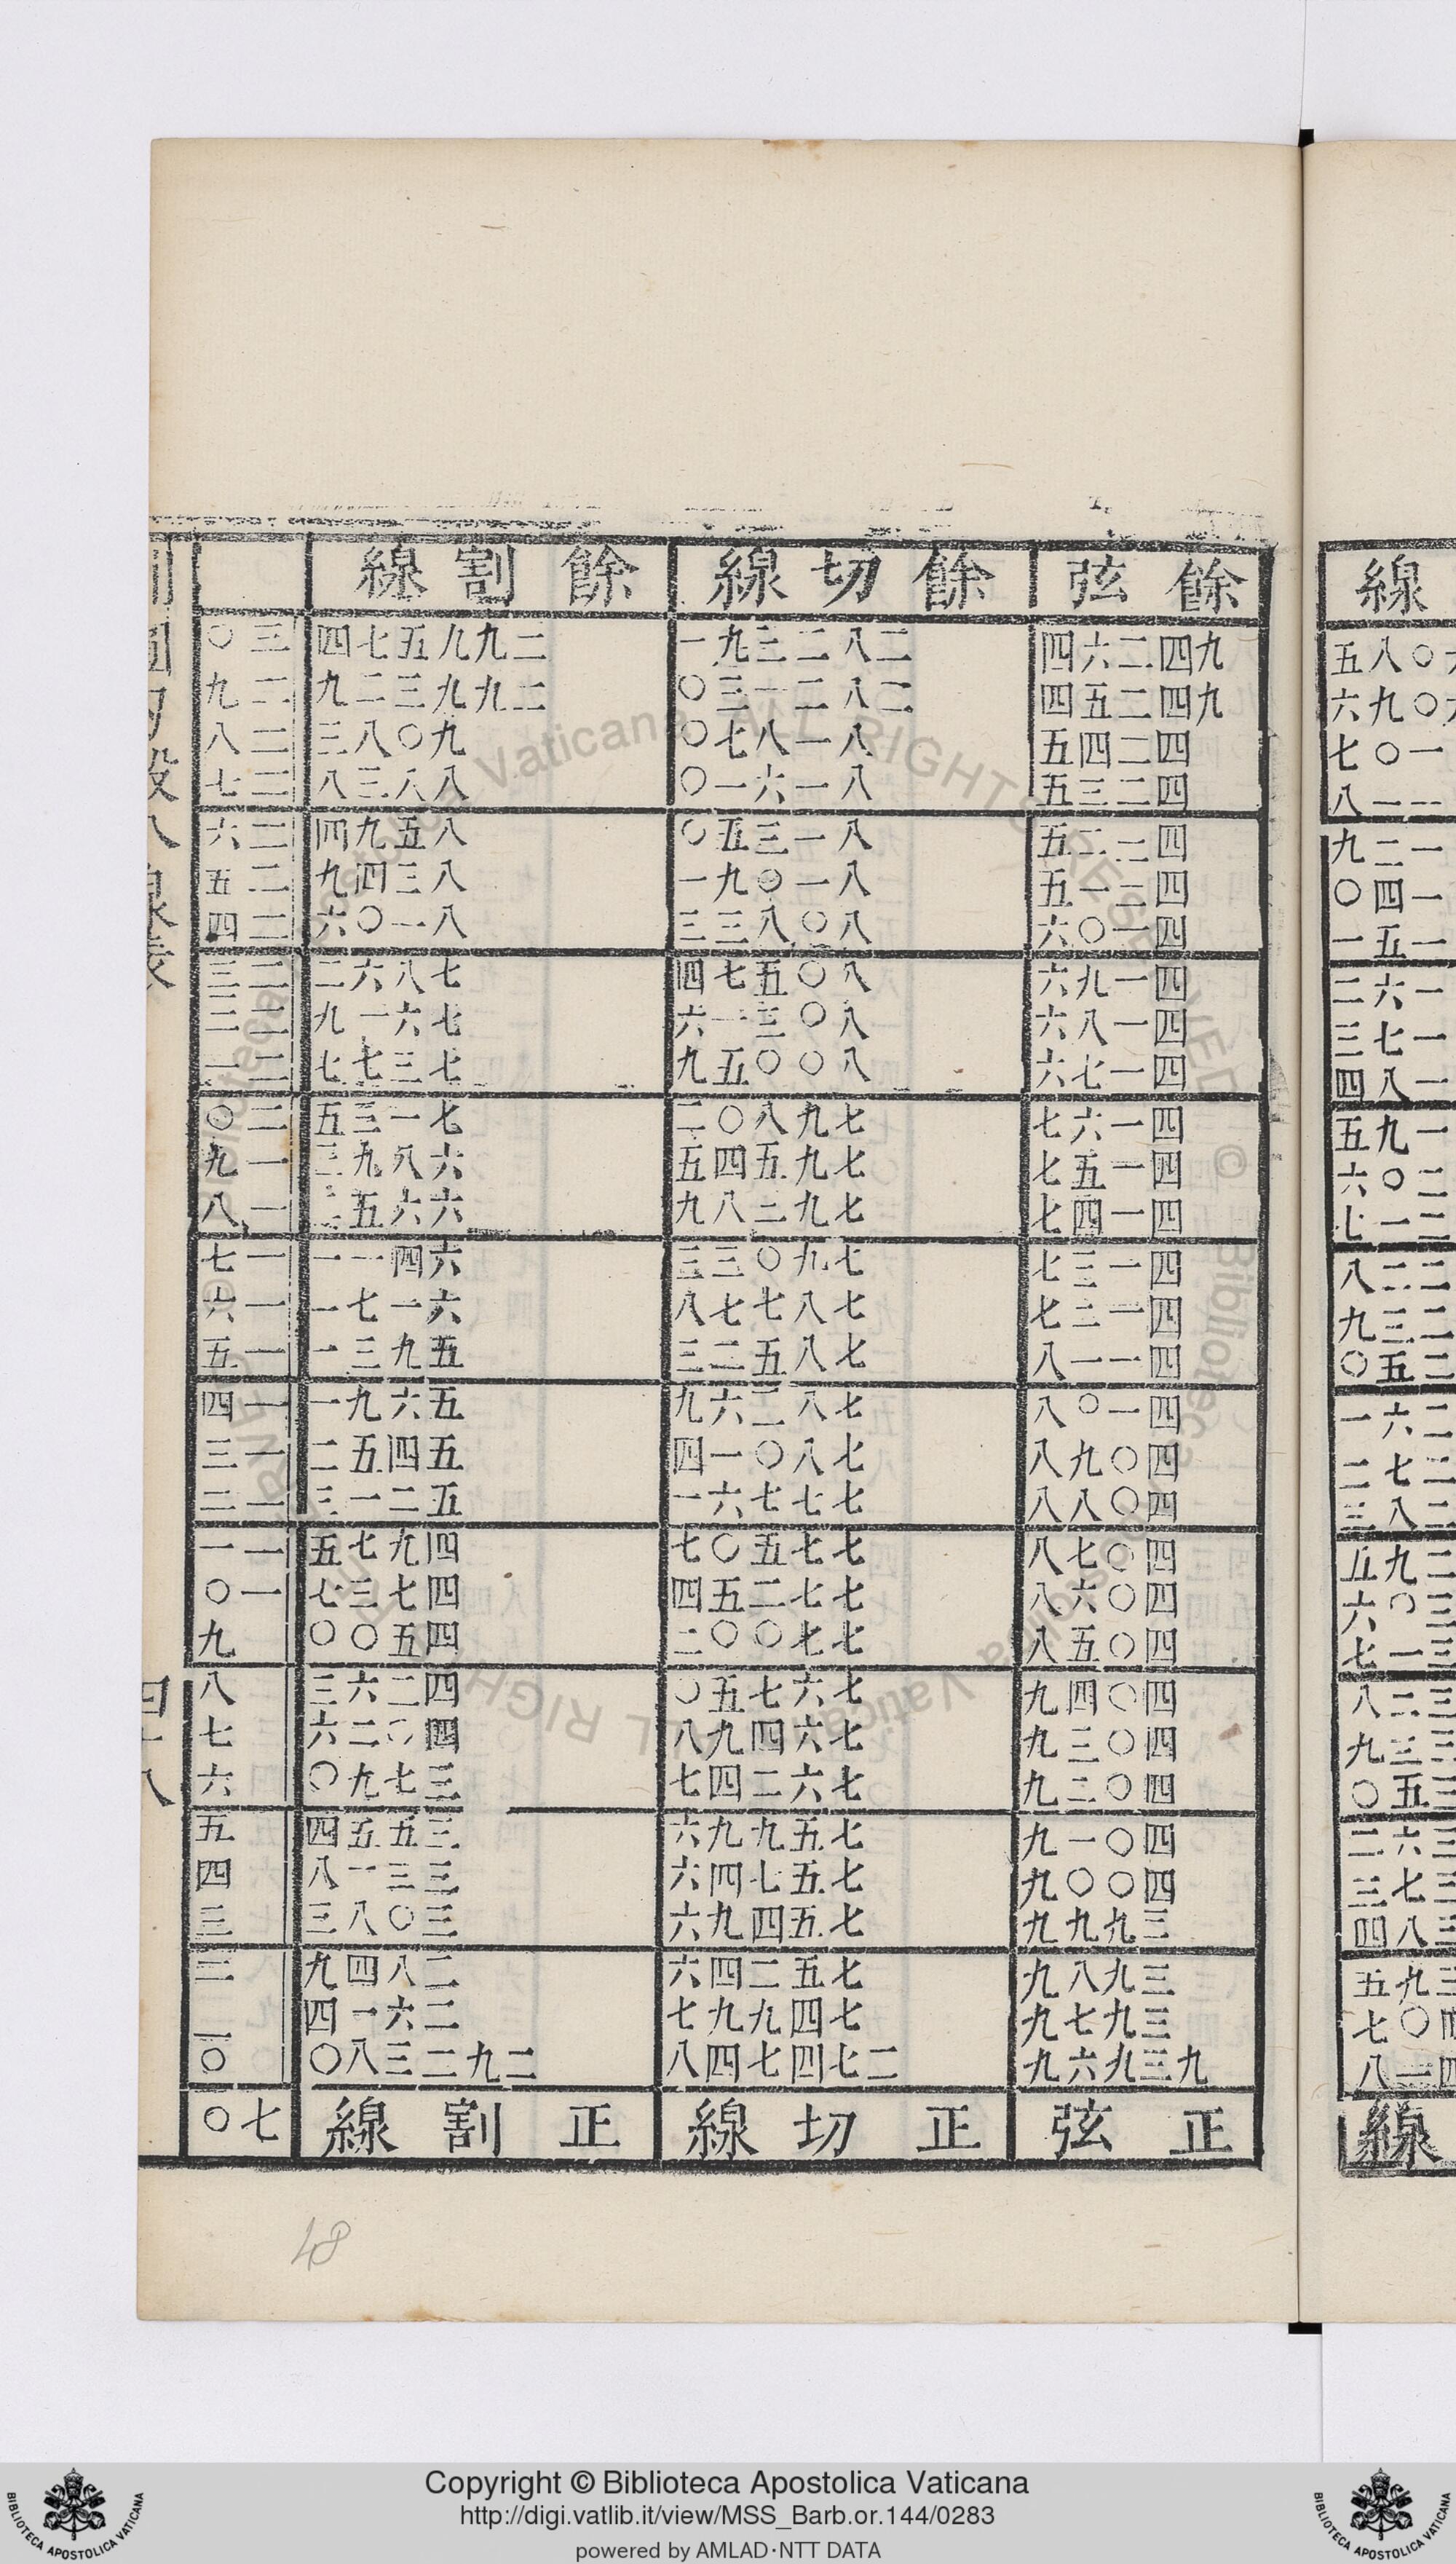 餘弦 餘切線 餘割線
九四二六四 二八二三九一 二九九五七四 三〇
九四二五四 二八二一三〇 二九九三二九 二九
四二四五 八一八七〇 九〇八三 二八
四二三五 八一六一〇 八八三八 二七
四二二五 八一三五〇 八五九四 二六
四二一五 八一〇九一 八三四九 二五
四一〇六 八〇八三三 八一〇六 二四
四一九六 八〇五七四 七八六二 二三
四一八六 八〇三一六 七六一九 二二
四一七六 八〇〇五九 七三七七 二一
四一六七 七九八〇二 七一三五 二〇
四一五七 七九五四五 六八九三 一九
四一四七 七九二八九 六六五二 一八
四一三七 七九〇三三 六四一一 一七
四一二七 七八七七八 六一七一 一六
四一一八 七八五二三 五九三一 一五
四一〇八 七八二六九 五六九一 一四
四〇九八 七八〇一四 五四五二 一三
四〇八八 七七七六一 五二一三 一二
四〇七八 七七五〇七 四九七五 一一
四〇六八 七七二五四 四七三七 一〇
四〇五八 七七〇〇二 四五〇〇 九
四〇四九 七六七五〇 四二六三 八
四〇三九 七六四九八 四〇二六 七
四〇二九 七六二四七 三七九〇 六
四〇一九 七五九九六 三五五四 五
四〇〇九 七五七四六 三三一八 四
三九九九 七五四九六 三〇八三 三
三九八九 七五二四六 二八四九 二
三九七九 七四九九七 二六一四 一
九三九六九 二七四七四八 二九二三八〇 〇
正弦 正切線 正割線 七〇
48
Copyright © Biblioteca Apostolica Vaticana
http://digi.vatlib.it/view/MSS_Barb.or.144/0283
powered by AMLAD·NTT DATA